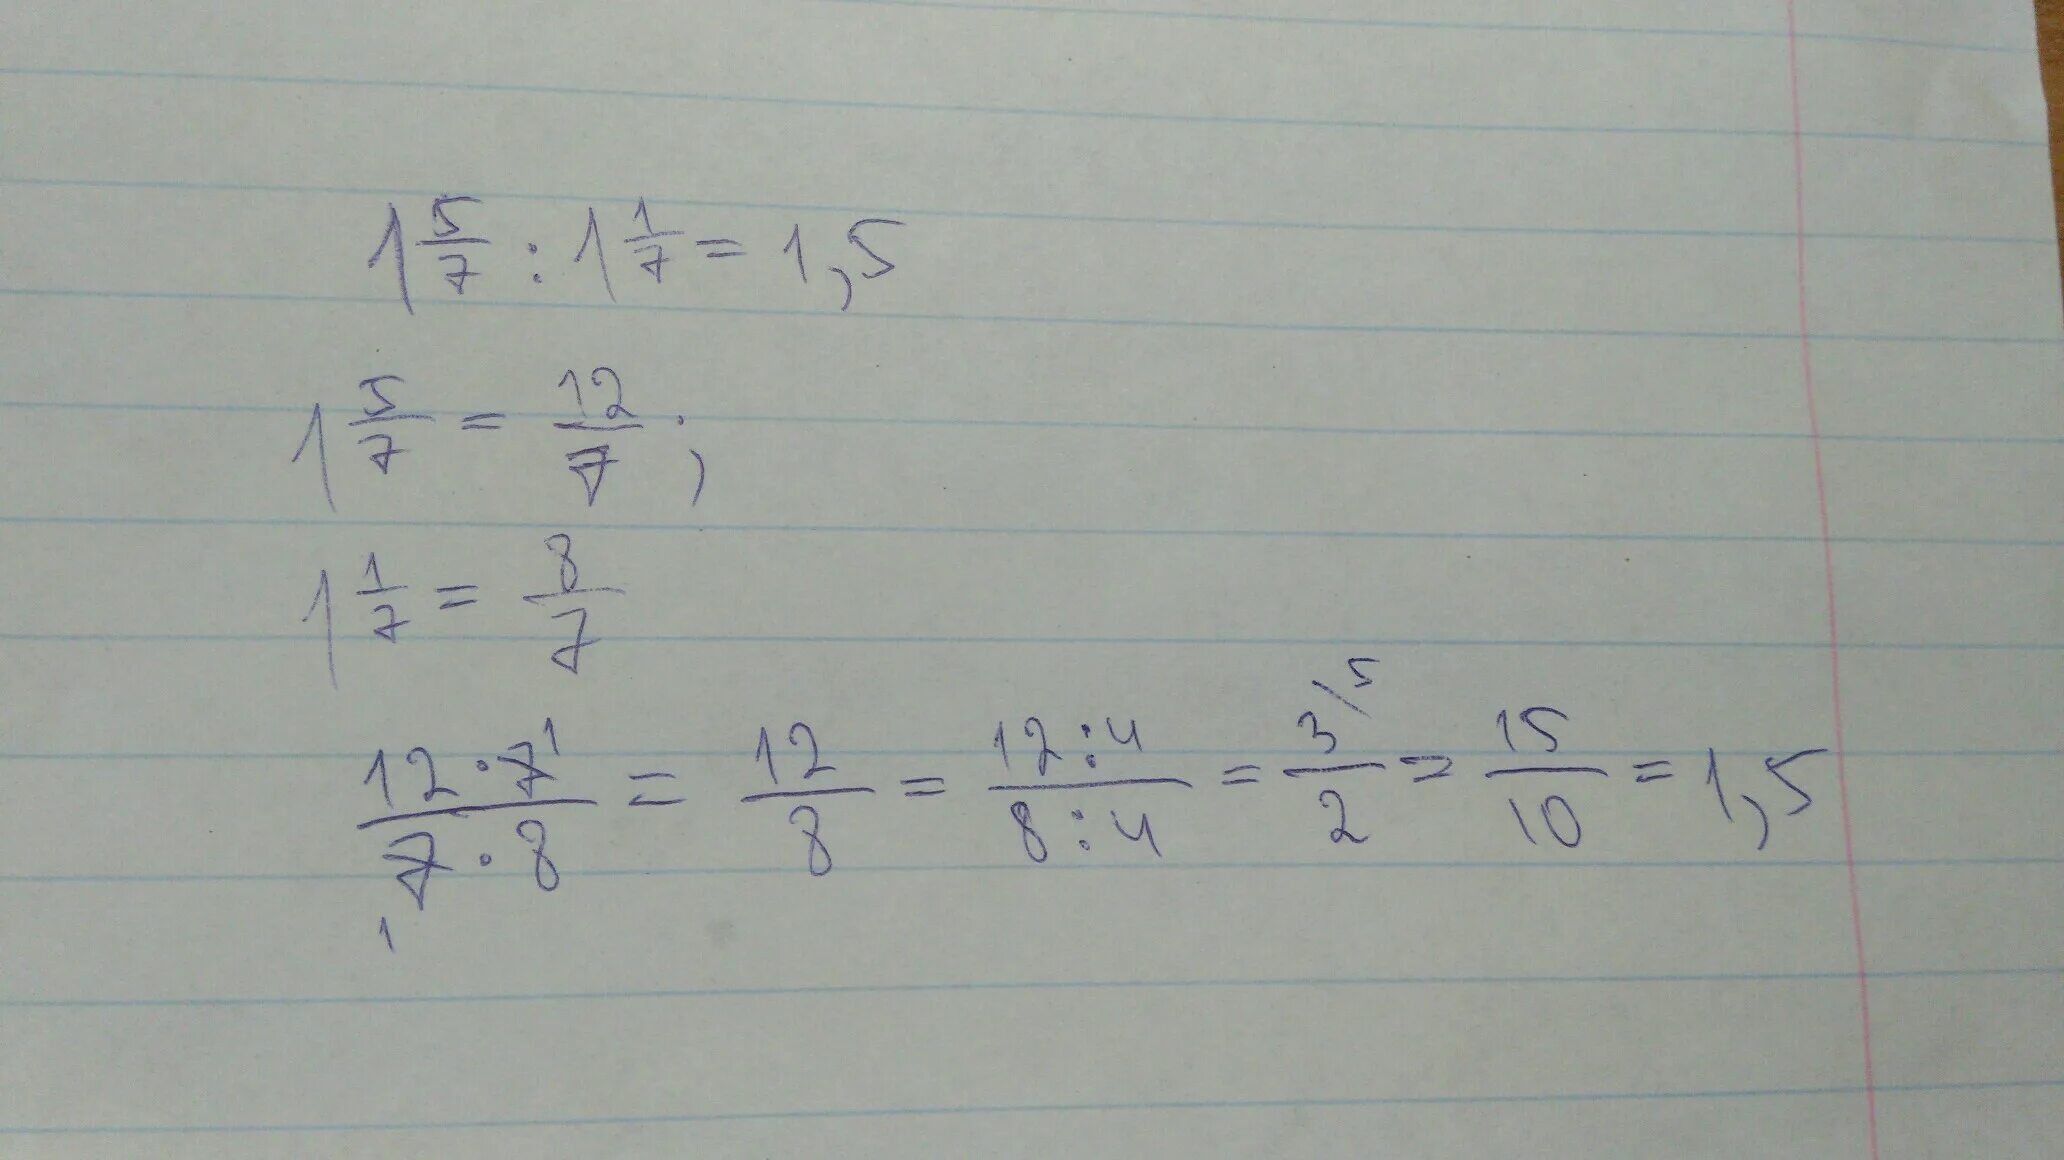 1 5/7 : 1 1/7 = 1,5
1 5/7 = 12/7 ;
1 1/7 = 8/7
12 · 7 1 / 7 · 8 1 = 12/8 = 12:4 / 8:4 = 3\5 / 2 = 15/10 = 1,5